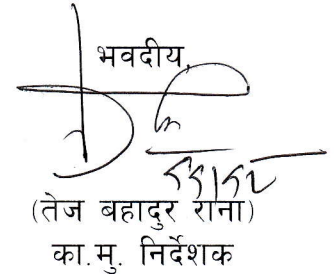 भवदीय,
(तेज बहादुर राना)
का.मु. निर्देशक